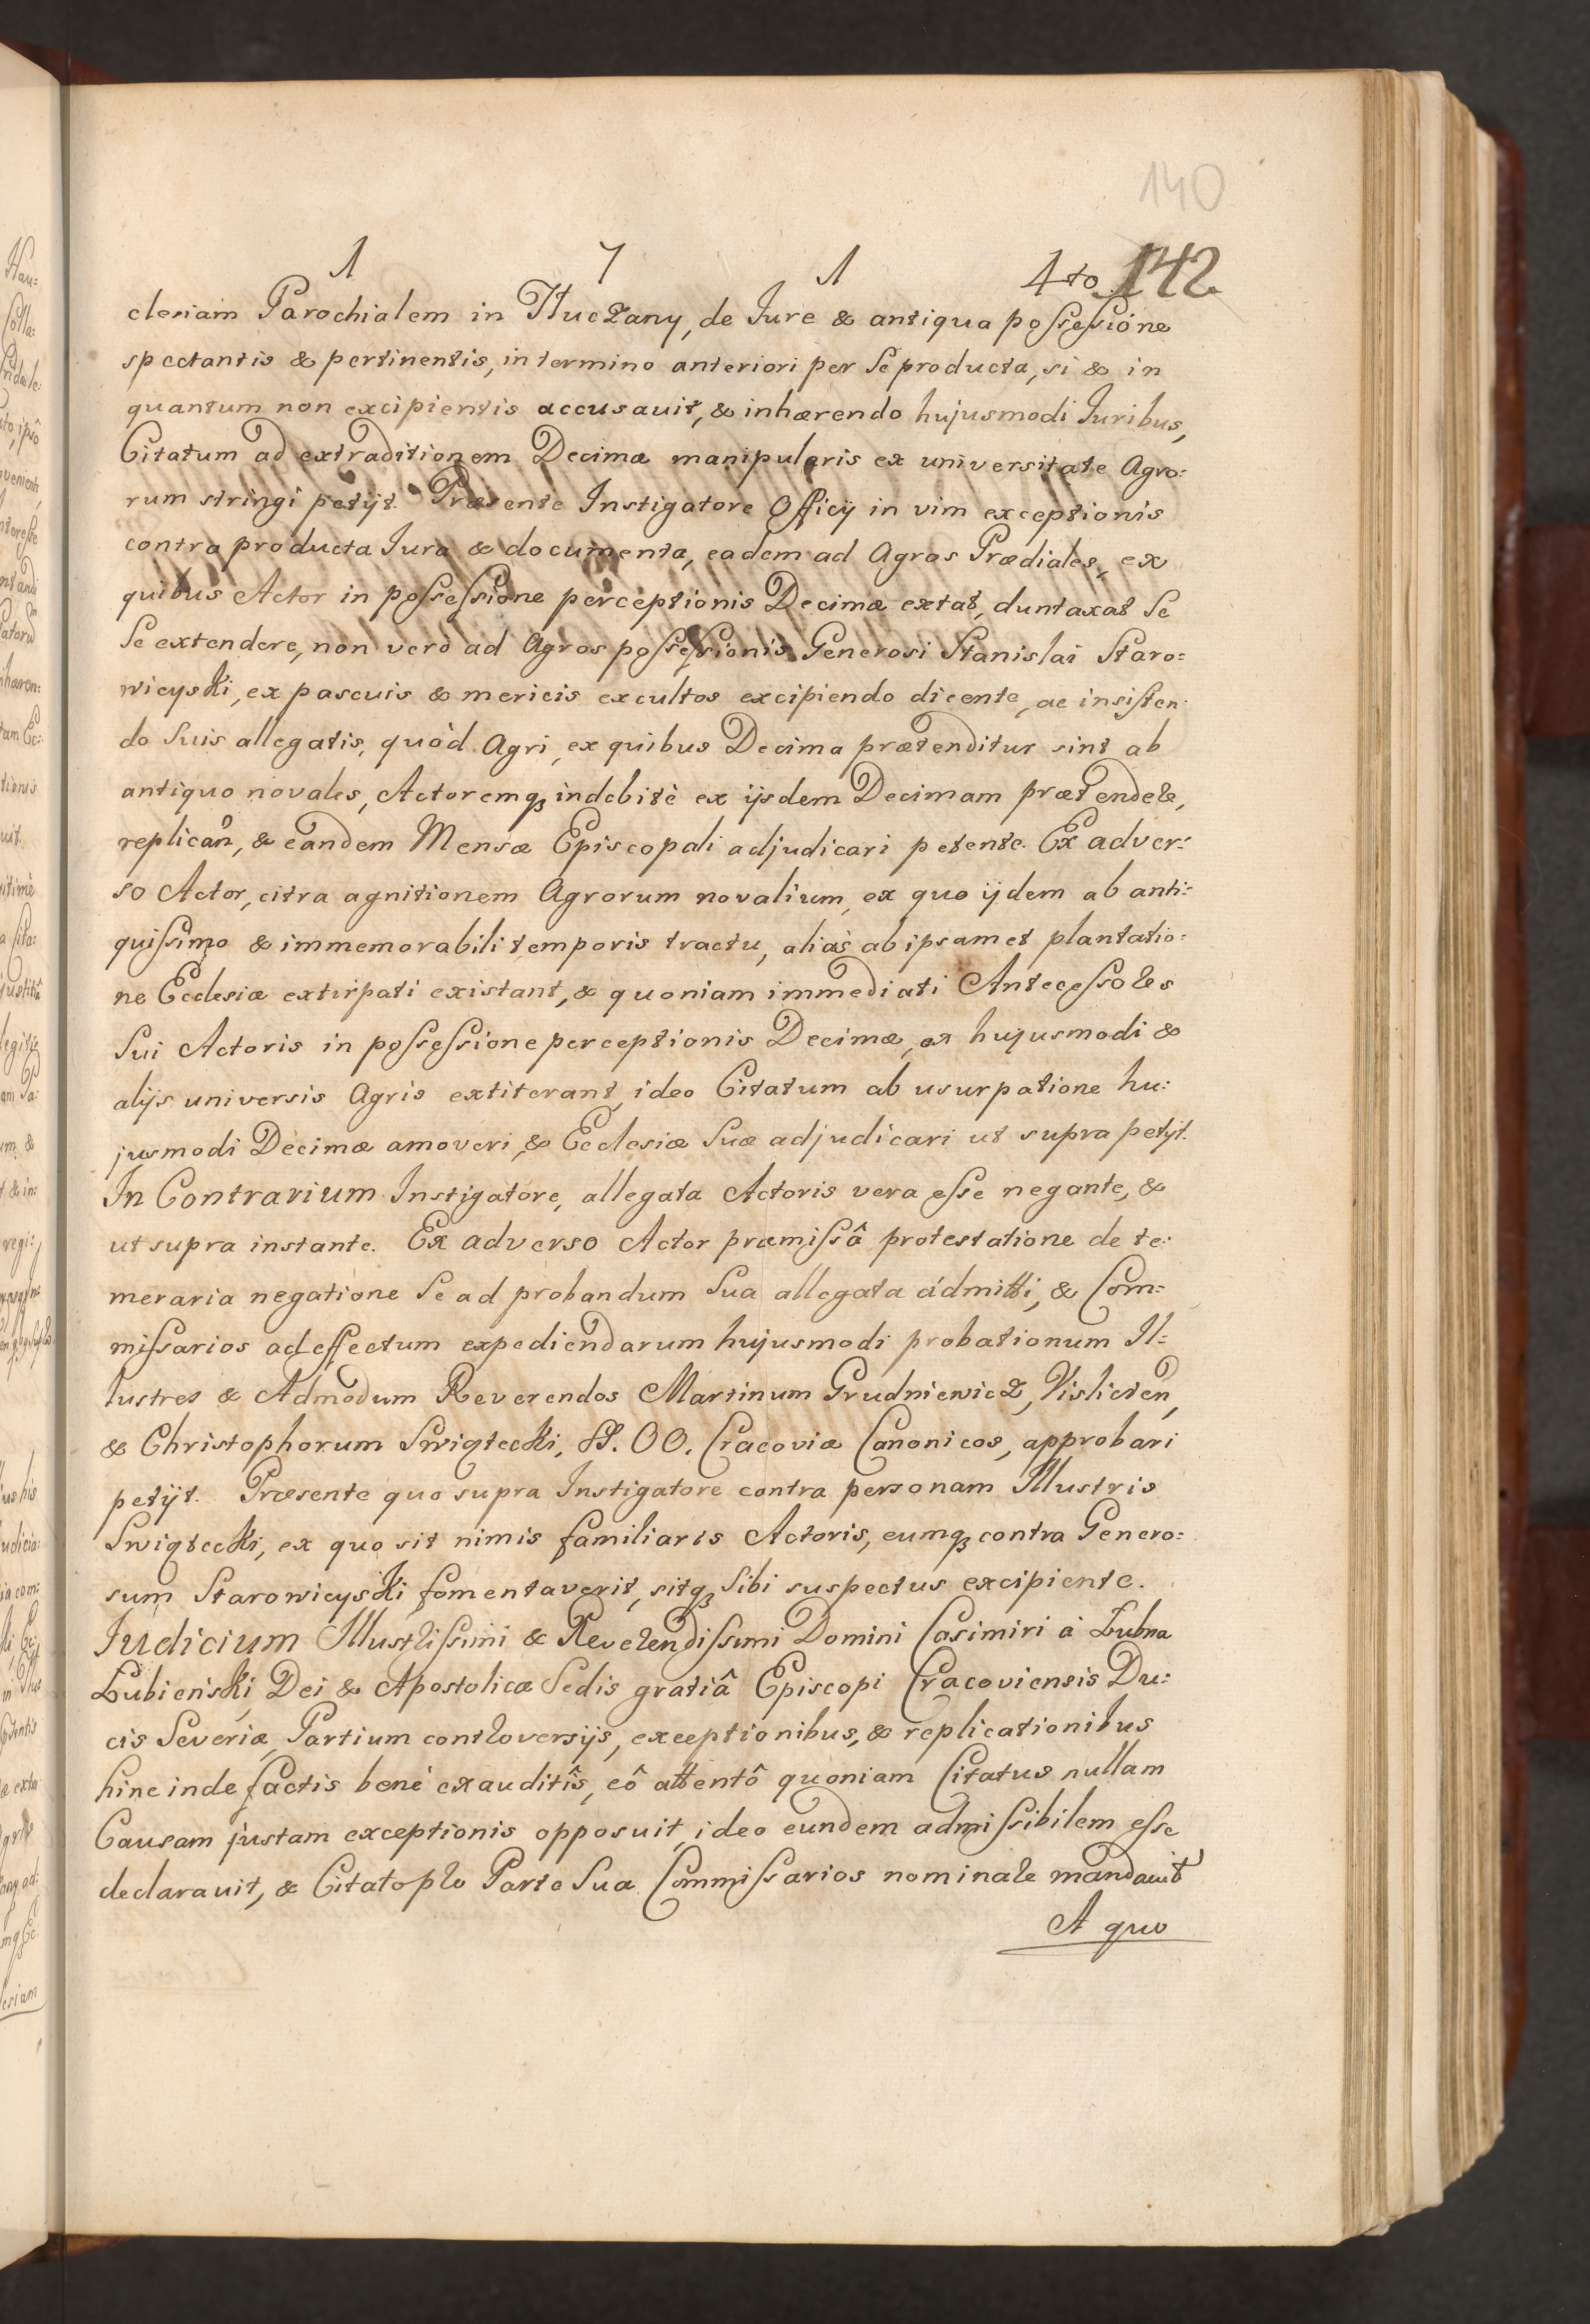 140
1 7 1 4to 142
clesiam Parochialem in Tłuczany, de Jure & antiqua possessióne
spectantis & pertinentis, in termino anteriori per Se producta, si & in
quantum non excipientis accusauit, & inhærendo hujusmodi Juribus,
Citatum ad extraditionem Decimæ manipularis ex universitate Agro:
rum stringi petijt. Præsente Instigatore Officij in vim exceptionis
contra producta Jura & documenta, eadem ad Agros Prædiales, ex
quibus Actor in possessione perceptionis Decimæ extat, duntaxat Se
Se extendere, non verò ad Agros possessionis Generosi Stanislai Staro=
wieyski, ex pascuis & mericis excultos excipiendo dicente, ac insisten:
do Suis allegatis, quòd Agri, ex quibus Decima prætenditur sint ab
antiquo novales, Actoremq; indebitè ex ijsdem Decimam prætendere,
replican, & eandem Mensæ Episcopali adjudicari petente. Ex adver:
so Actor, citra agnitionem Agrorum novalium, ex quo ijdem ab anti:
quissimo & immemorabili temporis tractu, aliàs ab ipsamet plantatio:
ne Ecclesiæ extirpati existant, & quoniam immediati Antecessores
Sui Actoris in possessione perceptionis Decimæ, ex hujusmodi &
alijs universis Agris extiterant, ideo Citatum ab usurpatione hu:
jusmodi Decimæ amoveri, & Ecclesiæ Suæ adjudicari ut supra petijt.
In Contrarium Instigatore, allegata Actoris vera esse negante, &
ut supra instante. Ex adverso Actor præmissâ protestatione de te:
meraria negatione Se ad probandum Sua allegata admitti, & Com=
missarios ad effectum expediendarum hujusmodi probationum Il=
lustres & Admodum Reverendos Martinum Grudniewicz, Vislicien,
& Christophorum Swiątecki, SS. OO. Cracoviæ Canonicos, approbari
petijt. Præsente quo supra Instigatore contra personam Illustris
Swiątecki, ex quo sit nimis familiaris Actoris, eumq; contra Genero=
sum Starowieyski fomentaverit, sitq; Sibi suspectus excipiente.
Iudicium Illustrissimi & Reverendissimi Domini Casimiri à Łubna
Łubieński Dei & Apostolicæ Sedis gratiâ Episcopi Cracoviensis Du:
cis Severiæ, Partium controversijs, exceptionibus, & replicationibus
hinc inde factis benè exauditîs, eô attentô quoniam Citatus nullam
Causam justam exceptionis opposuit, ideo eundem admissibilem esse
declarauit, & Citato pro Parte Sua Commissarios nominare mandauit
A quo